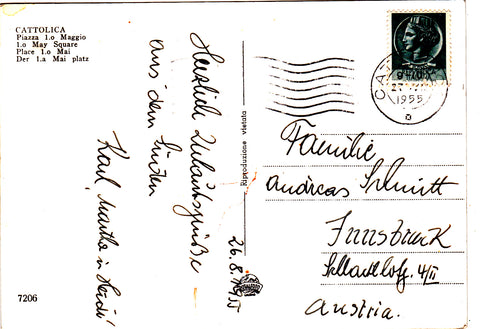 CATTOLICA
Piazza 1.o Maggio
1.o May Square
Place 1.o Mai
Der 1.a Mai platz
Herzlich Urlaubsgrüße
aus dem Süden
Karl, Martha u. Heidi
26.8.1955
Riproduzione vietata
1955
Familie
Andreas Schmitt
Innsbruck
4/II
Austria.
7206